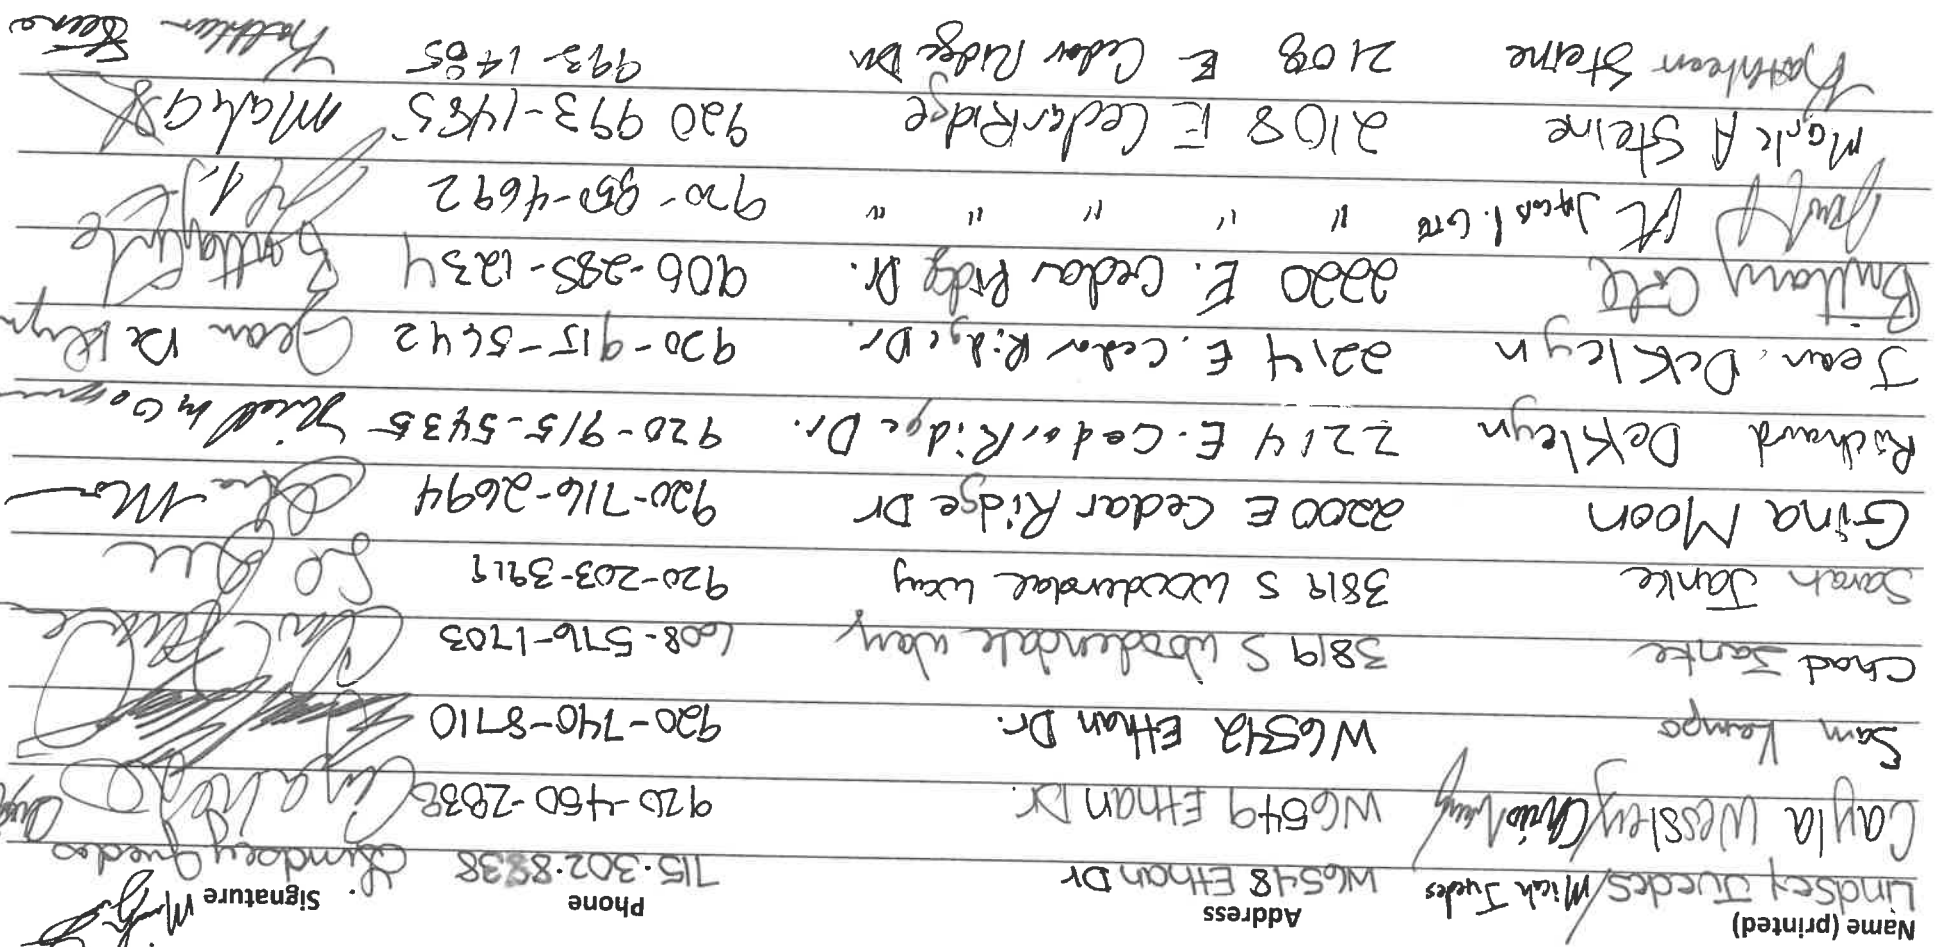 Name (printed) Address Phone Signature
Lindsey Juedes/Micah Juedes W6548 Ethan Dr 715.302.8838 Lindsey Juedes
Cayla Wessley/Chris W6549 Ethan Dr. 920-450-2838
Sam Kempo W6542 Ethan Dr. 920-740-8710
Chad Janke 3819 S Woodendale Way 608-576-1703
Sarah Janke 3819 S Woodendale Way 920-203-3919
Gina Moon 2200 E Cedar Ridge Dr 920-716-2694
Richard DeKleyn 2214 E. Cedar Ridge Dr. 920-915-5435
Jean DeKleyn 2214 E. Cedar Ridge Dr. 920-915-5642 Jean DeKleyn
Brittany Cote 2220 E. Cedar Ridge Dr. 906-285-1234
" " " " " 920-850-4692
Mark A Steine 2108 E Cedar Ridge 920 993-1485
Kathleen Steine 2108 E Cedar Ridge Dr 993-1485 Kathleen Steine